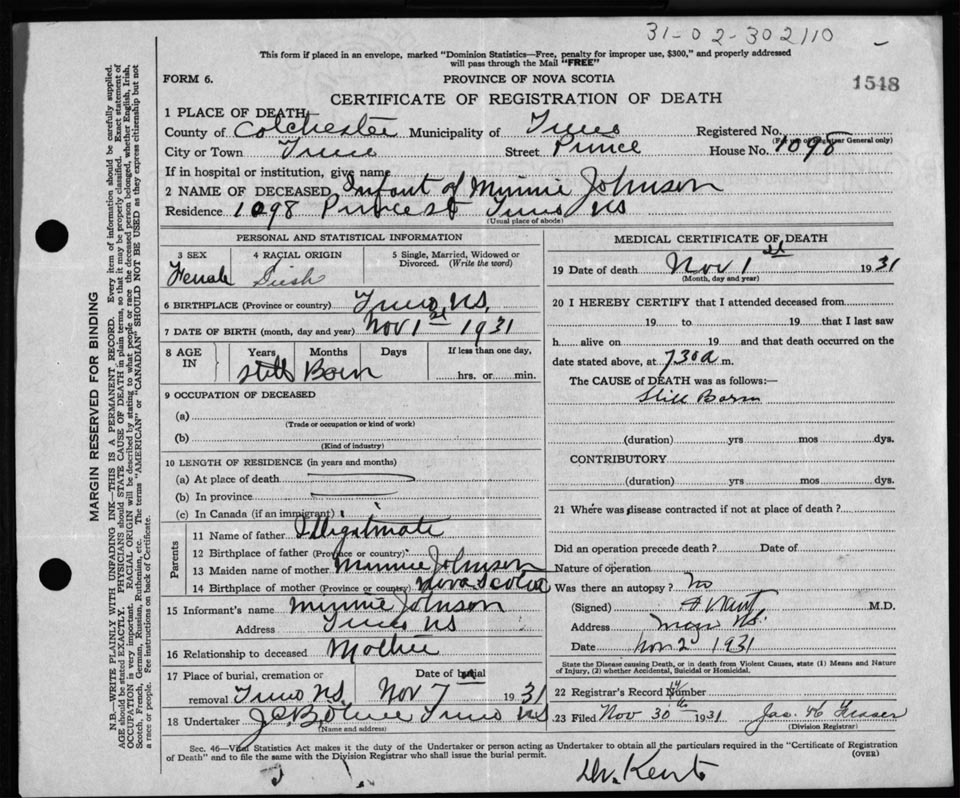 31-02-302110
This form if placed in an envelope, marked "Dominion Statistics—Free, penalty for improper use, $300," and properly addressed
will pass through the Mail "FREE"
FORM 6.
PROVINCE OF NOVA SCOTIA
1548
CERTIFICATE OF REGISTRATION OF DEATH
1 PLACE OF DEATH
County of Colchester Municipality of Truro Registered No.
(For use of Registrar General only)
City or Town Truro Street Prince House No. 1098
If in hospital or institution, give name
2 NAME OF DECEASED Infant of Minnie Johnson
Residence 1098 Prince St Truro NS
(Usual place of abode)
PERSONAL AND STATISTICAL INFORMATION
3 SEX 4 RACIAL ORIGIN 5 Single, Married, Widowed or
Divorced. (Write the word)
Female
6 BIRTHPLACE (Province or country) Truro NS.
7 DATE OF BIRTH (month, day and year) Nov 1st 1931
8 AGE IN Years Months Days If less than one day,
Still Born hrs. or min.
9 OCCUPATION OF DECEASED
(a)
(Trade or occupation or kind of work)
(b)
(Kind of industry)
10 LENGTH OF RESIDENCE (in years and months)
(a) At place of death
(b) In province
(c) In Canada (if an immigrant)
Parents
11 Name of father Illegitimate
12 Birthplace of father (Province or country)
13 Maiden name of mother Minnie Johnson
14 Birthplace of mother (Province or country) Nova Scotia
15 Informant's name Minnie Johnson
Address Truro NS
16 Relationship to deceased Mother
17 Place of burial, cremation or Date of burial
removal Truro NS. Nov 7 1931
18 Undertaker Truro NS
(Name and address)
MEDICAL CERTIFICATE OF DEATH
19 Date of death Nov 1st 1931
(Month, day and year)
20 I HEREBY CERTIFY that I attended deceased from
19 to 19 that I last saw
h alive on 19 and that death occurred on the
date stated above, at 7 30 a m.
The CAUSE of DEATH was as follows:—
Still Born
(duration) yrs mos dys.
CONTRIBUTORY
(duration) yrs mos dys.
21 Where was disease contracted if not at place of death?
Did an operation precede death? Date of
Nature of operation
Was there an autopsy? No
(Signed) Kent M.D.
Address Truro NS.
Date Nov 2d 1931
State the Disease causing Death, or in death from Violent Causes, state (1) Means and Nature
of Injury, (2) whether Accidental, Suicidal or Homicidal.
22 Registrar's Record Number
23 Filed Nov 30th 1931 Fraser
(Division Registrar)
Sec. 46—Vital Statistics Act makes it the duty of the Undertaker or person acting as Undertaker to obtain all the particulars required in the "Certificate of Registration
of Death" and to file the same with the Division Registrar who shall issue the burial permit. (OVER)
Dr. Kent
MARGIN RESERVED FOR BINDING
N.B.—WRITE PLAINLY WITH UNFADING INK—THIS IS A PERMANENT RECORD. Every item of information should be carefully supplied.
AGE should be stated EXACTLY. PHYSICIANS should STATE CAUSE OF DEATH in plain terms, so that it may be properly classified. Exact statement of
OCCUPATION is very important. RACIAL ORIGIN will be described by stating to what people or race the deceased person belonged, whether English, Irish,
Scotch, French, German, Russian, Ruthenian, etc. The terms "AMERICAN" or "CANADIAN" SHOULD NOT BE USED as they express citizenship but not
a race or people. See instructions on back of Certificate.